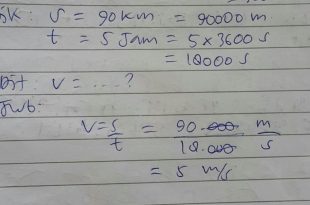 Dik: S = 90 km = 90000 m
t = 5 Jam = 5 x 3600 s
= 18000 s
Dit: V = ....?
Jwb:
V = s/t = 90.000/18.000 m/s
= 5 m/s